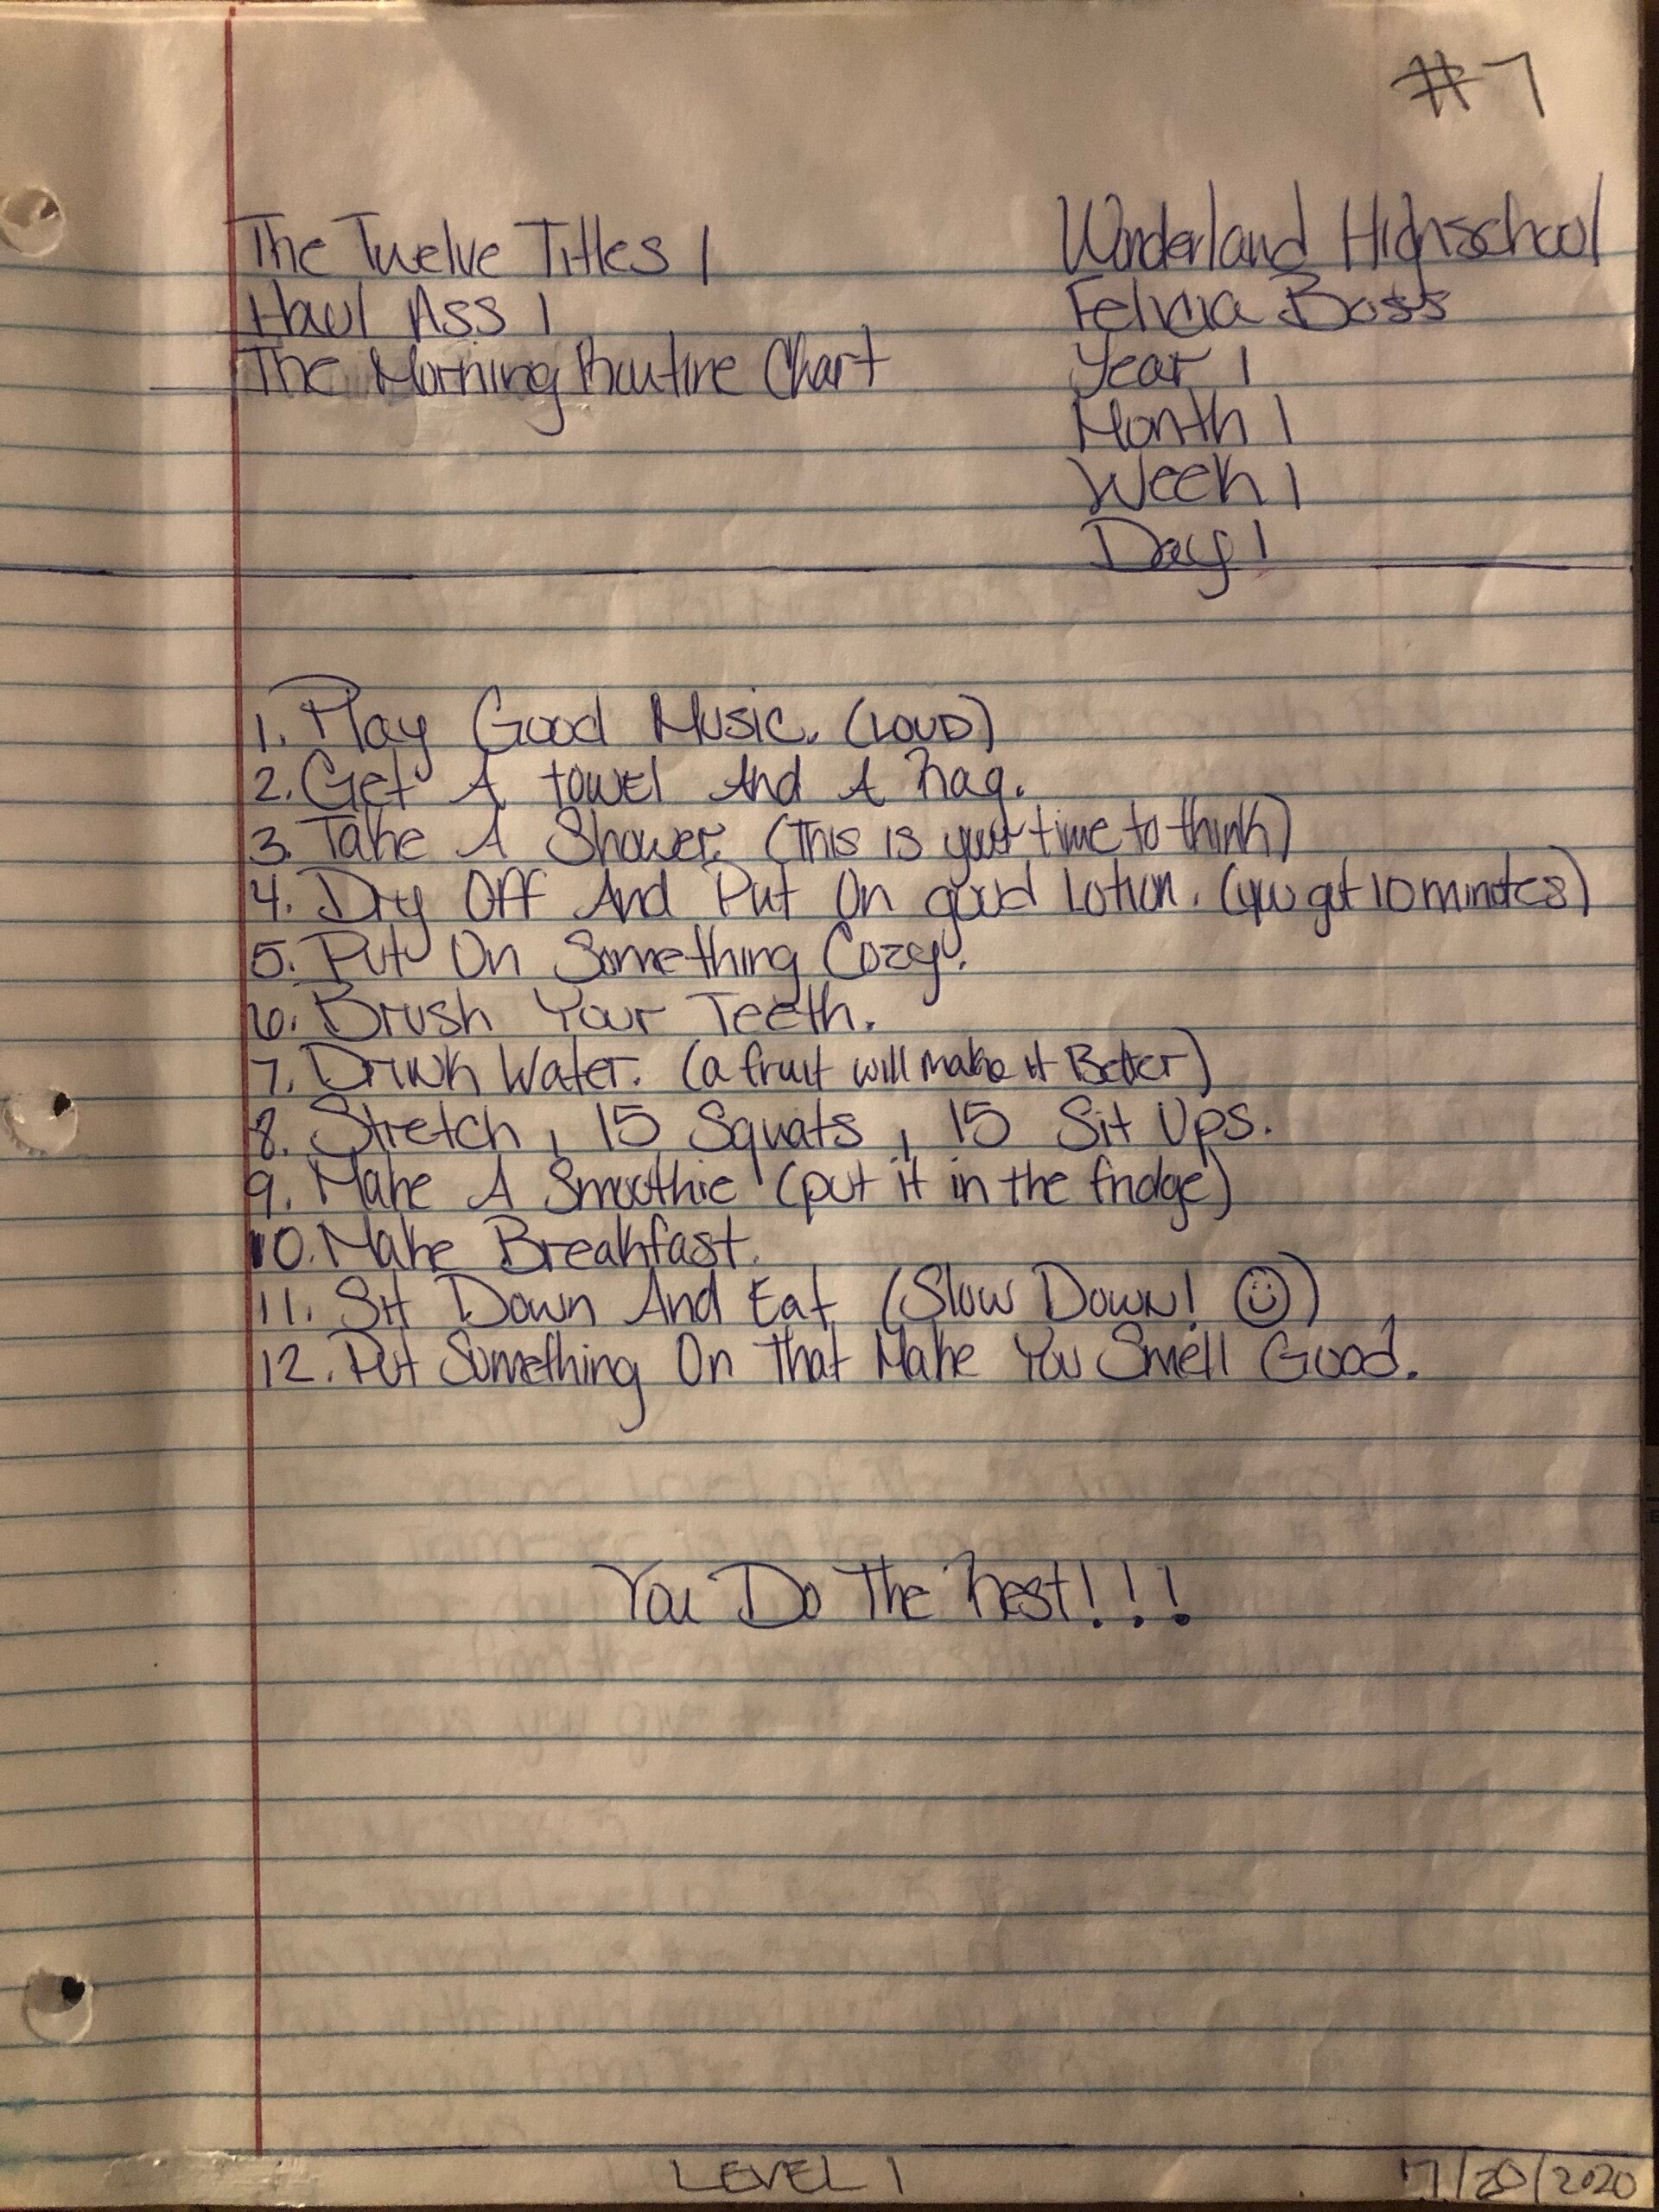 #7
The Twelve Titles 1
Haul Ass 1
The Morning Routine Chart
Wonderland Highschool
Felicia Boss
Year 1
Month 1
Week 1
Day 1
1. Play Good Music. (LOUD)
2. Get A towel And A Rag.
3. Take A Shower. (This is your time to think)
4. Dry Off And Put On good Lotion. (you got 10 minutes)
5. Put On Something Cozy.
6. Brush Your Teeth.
7. Drink Water. (a fruit will make it Better)
8. Stretch, 15 Squats, 15 Sit Ups.
9. Make A Smoothie (put it in the fridge)
10. Make Breakfast.
11. Sit Down And Eat (Slow Down! ☺)
12. Put Something On That Make You Smell Good.
You Do The Rest!!!
LEVEL 1
7/20/2020